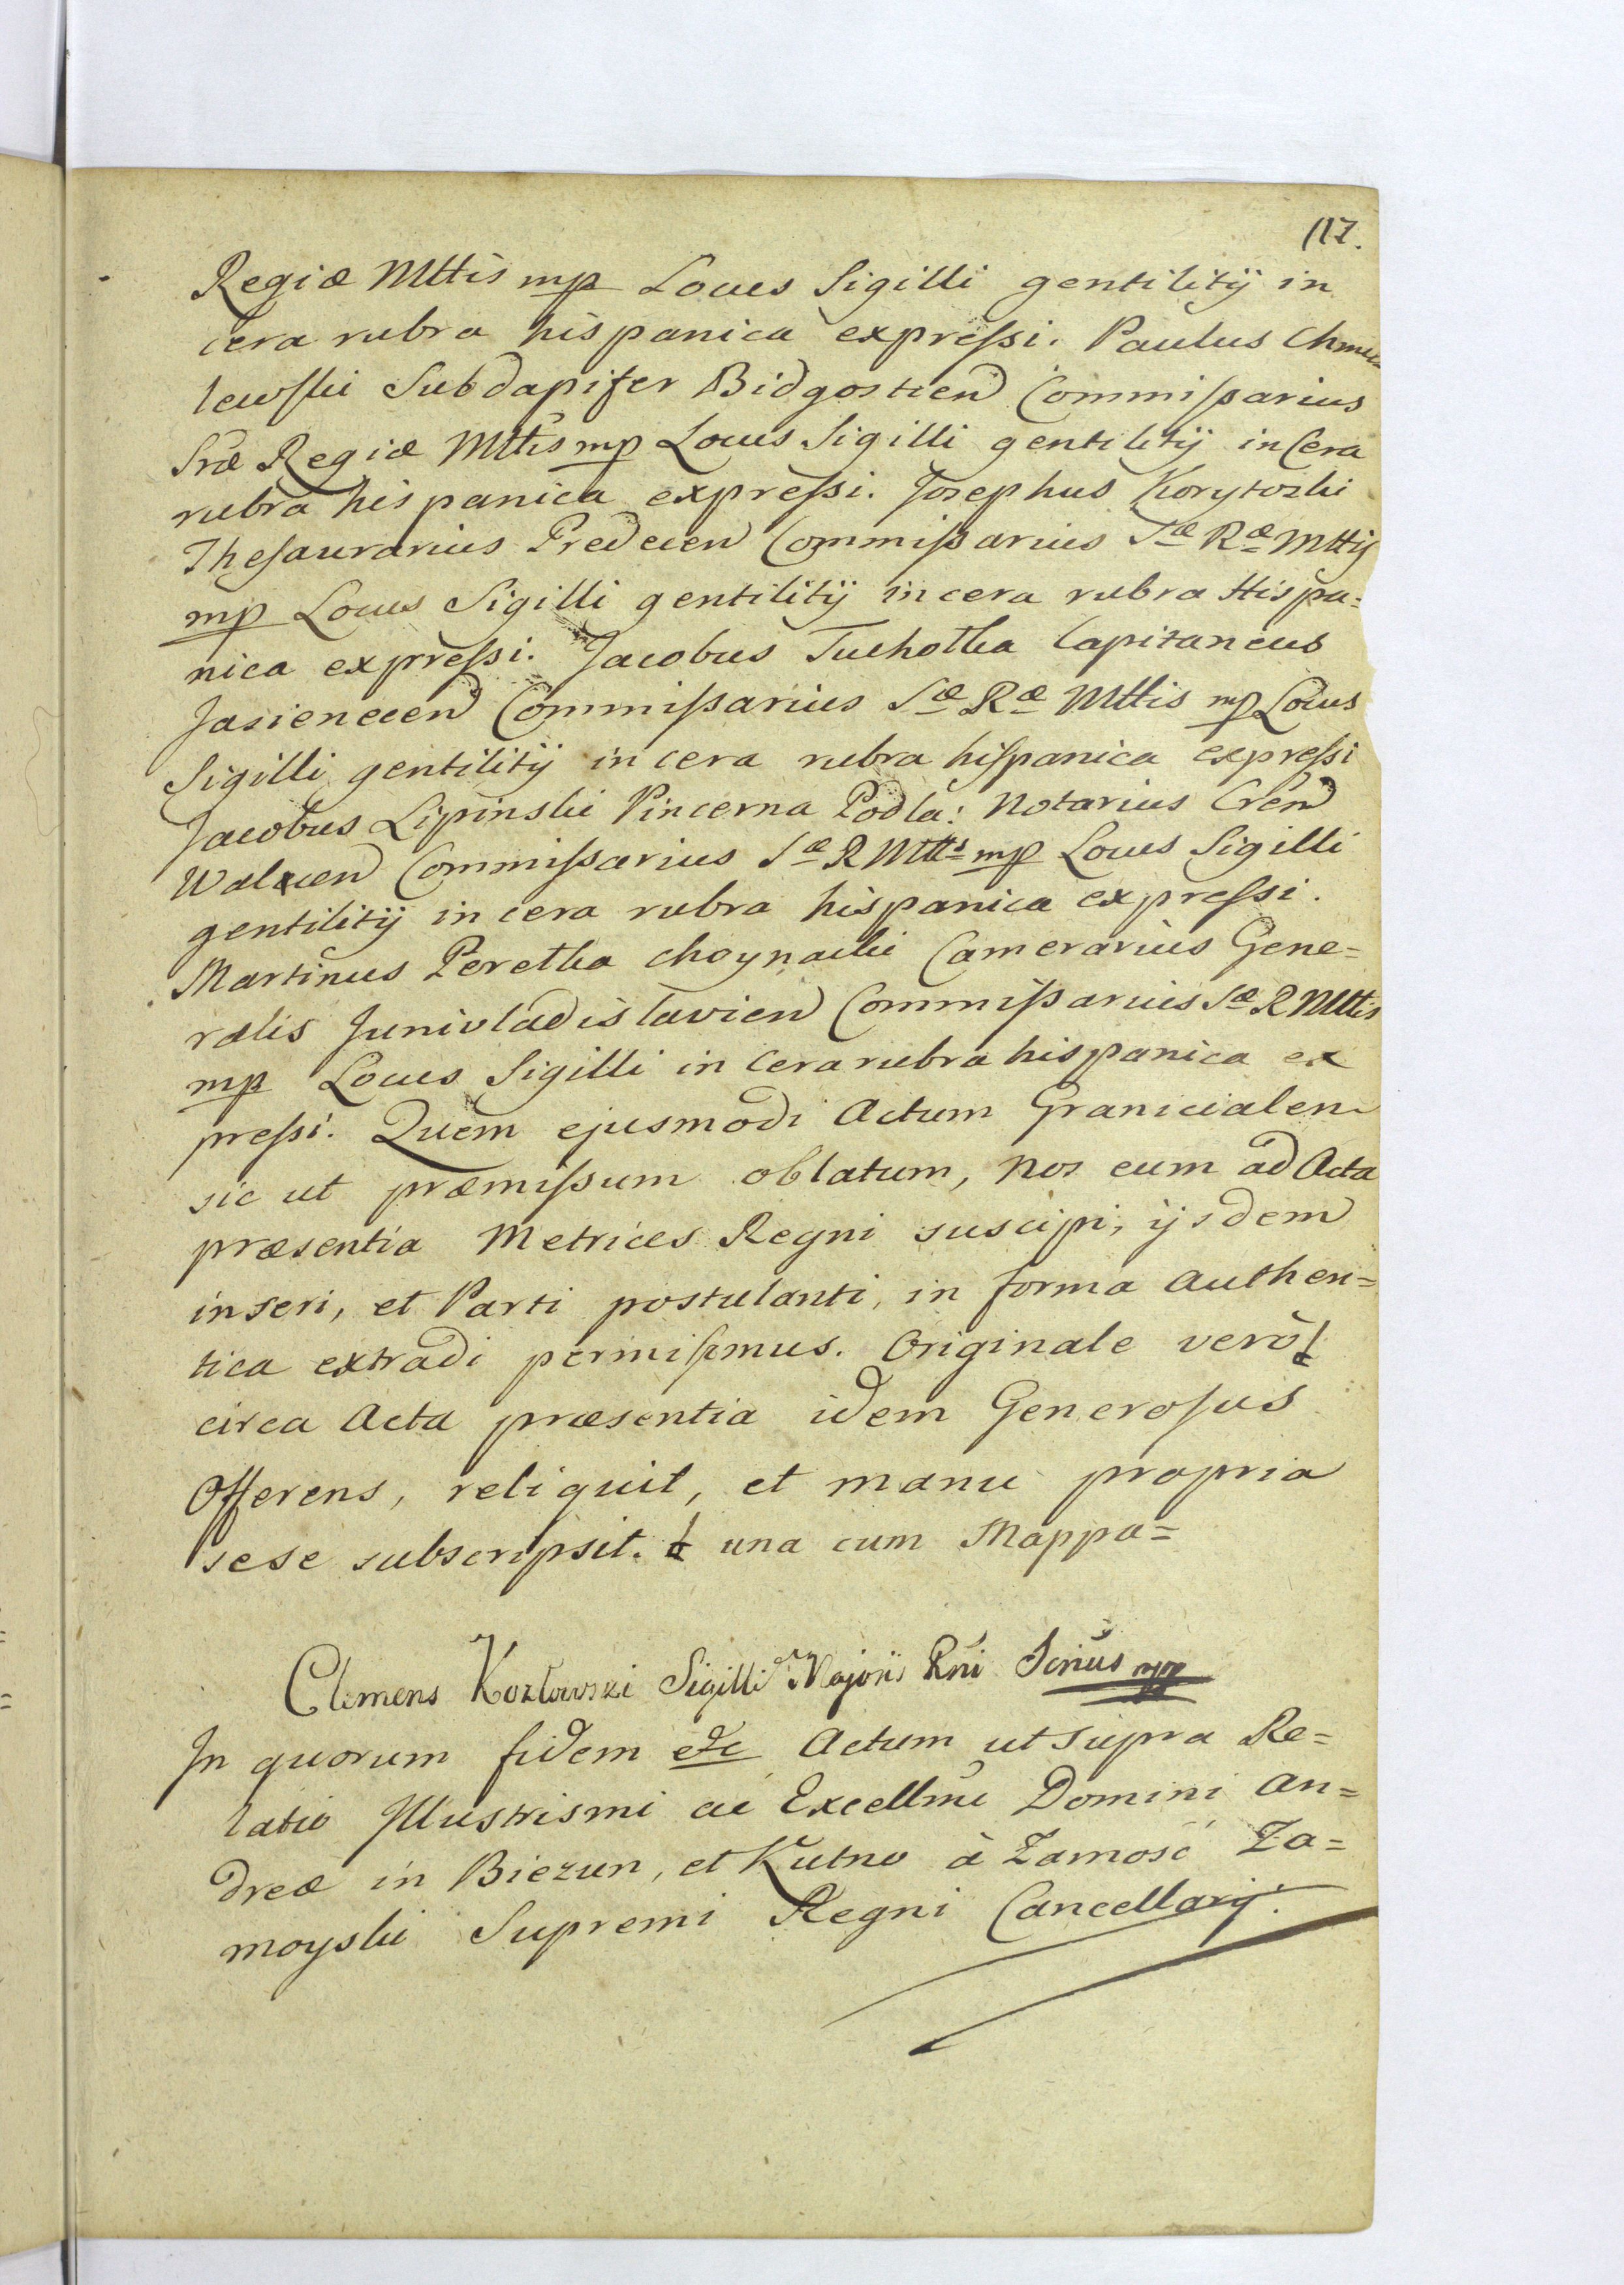 117.
Regiæ Mttis mp Locus Sigilli gentilitij in
cera rubra hispanica expreſsi. Paulus Chmie=
lewſki Subdapifer Bidgostien Commiſsarius
Sræ Regiæ Mttis mp Locus Sigilli gentilitij in Cera
rubra hispanica expreſsi. Josephus Korytoski
Theſaurarius Predecen Commiſsarius Sæ Ræ Mttis
mp Locus Sigilli gentilitij in cera rubra Hispa=
nica expreſsi. Jacobus Tuchołka Capitaneus
Jasienecen Commiſsarius Sæ Ræ Mttis mp Locus
Sigilli gentilitij in cera rubra hiſpanica expreſsi
Jacobus Lipinski Pincerna Podla: Notarius Cren
Walcen Commiſsarius Sæ R Mttis mp Locus Sigilli
gentilitij in cera rubra hispanica expreſsi.
Martinus Peretka Choynacki Camerarius Gene=
ralis Junivladislavien Commiſsarius Sæ R Mttis
mp Locus Sigilli in Cera rubra hispanica ex
preſsi. Quem ejusmodi Actum Granicialem
sic ut præmiſsum oblatum, Nos eum ad Acta
præsentia Metrices Regni suscipi, ijsdem
inseri, et Parti postulanti, in forma Authen=
tica extradi permiſimus. Originale verò
circa Acta præsentia idem Generoſus
Offerens, reliquit, et manu propria
sese subscripsit. una cum Mappa=
Clemens Kozłowski Sigilli Majoris Rni Scrius mp
In quorum fidem etc Actum ut supra Re=
latio Illustrismi ac Excellmi Domini An=
dreæ in Biezun, et Kutno à Zamość Za=
moyski Supremi Regni Cancellarij.